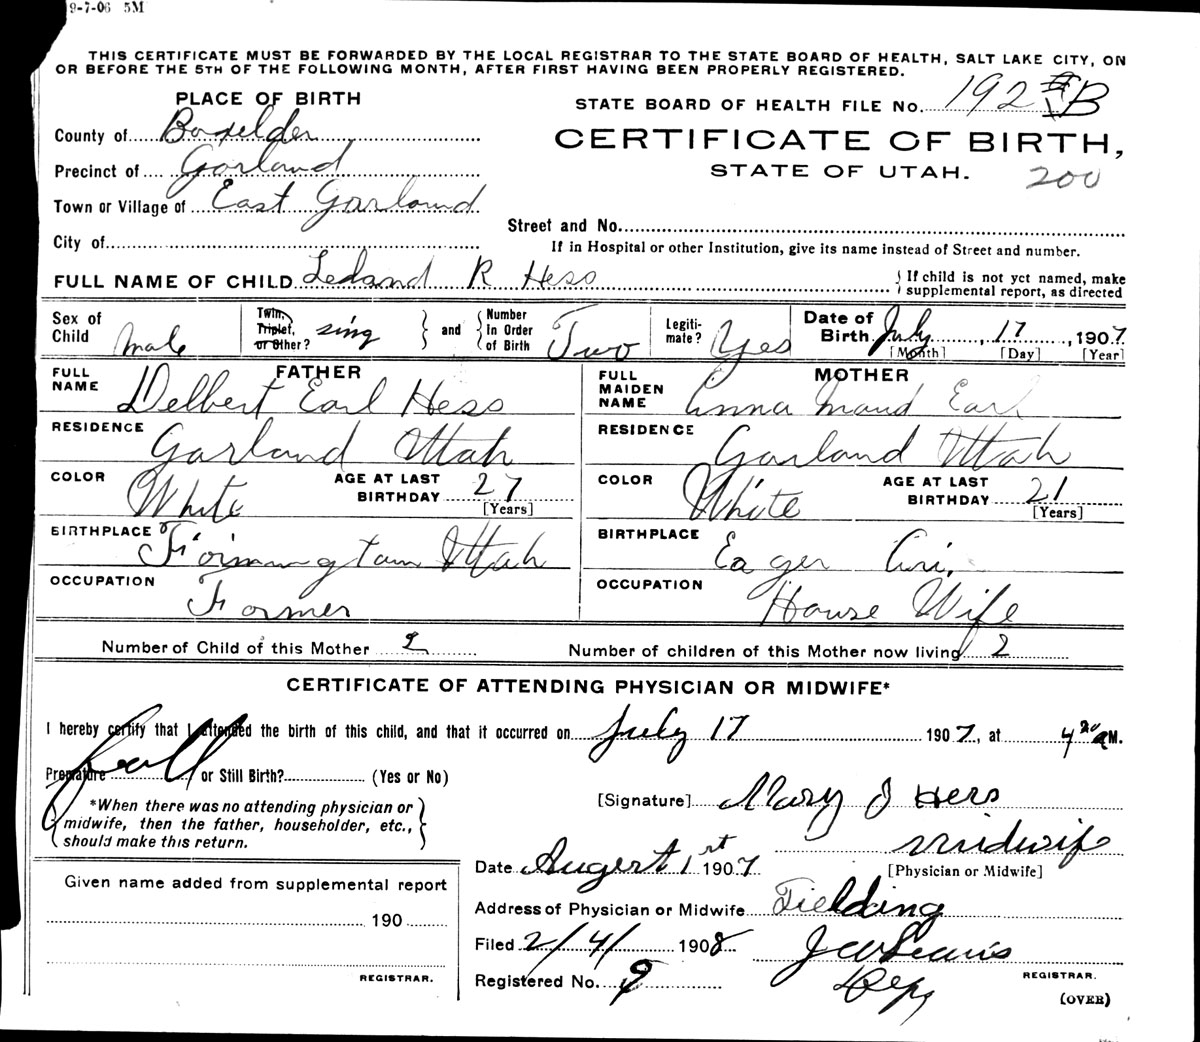 9-7-06 5M
THIS CERTIFICATE MUST BE FORWARDED BY THE LOCAL REGISTRAR TO THE STATE BOARD OF HEALTH, SALT LAKE CITY, ON
OR BEFORE THE 5TH OF THE FOLLOWING MONTH, AFTER FIRST HAVING BEEN PROPERLY REGISTERED.
PLACE OF BIRTH
STATE BOARD OF HEALTH FILE No. 192 B
County of Boxelder
CERTIFICATE OF BIRTH,
Precinct of Garland
STATE OF UTAH.
200
Town or Village of East Garland
Street and No.
City of
If in Hospital or other Institution, give its name instead of Street and number.
FULL NAME OF CHILD Leland R Hess
If child is not yet named, make
supplemental report, as directed
Sex of Child male
Twin, Triplet, or Other? sing
and
Number In Order of Birth Two
Legiti-mate? Yes
Date of Birth July 17, 1907
[Month] [Day] [Year]
FATHER
MOTHER
FULL NAME Delbert Earl Hess
FULL MAIDEN NAME Anna Maud Earl
RESIDENCE Garland Utah
RESIDENCE Garland Utah
COLOR White
AGE AT LAST BIRTHDAY 27 [Years]
COLOR White
AGE AT LAST BIRTHDAY 21 [Years]
BIRTHPLACE Farmington Utah
BIRTHPLACE Eager Ari.
OCCUPATION Farmer
OCCUPATION House Wife
Number of Child of this Mother 2
Number of children of this Mother now living 2
CERTIFICATE OF ATTENDING PHYSICIAN OR MIDWIFE*
I hereby certify that I attended the birth of this child, and that it occurred on July 17 1907, at 4 20 a M.
Premature or Still Birth? (Yes or No)
full
*When there was no attending physician or
midwife, then the father, householder, etc.,
should make this return.
[Signature] Mary J Hess
Midwife
[Physician or Midwife]
Date August 1st 1907
Given name added from supplemental report
190
REGISTRAR.
Address of Physician or Midwife Fielding
Filed 2/4/ 1908
REGISTRAR.
Registered No. 9
Dep
(OVER)